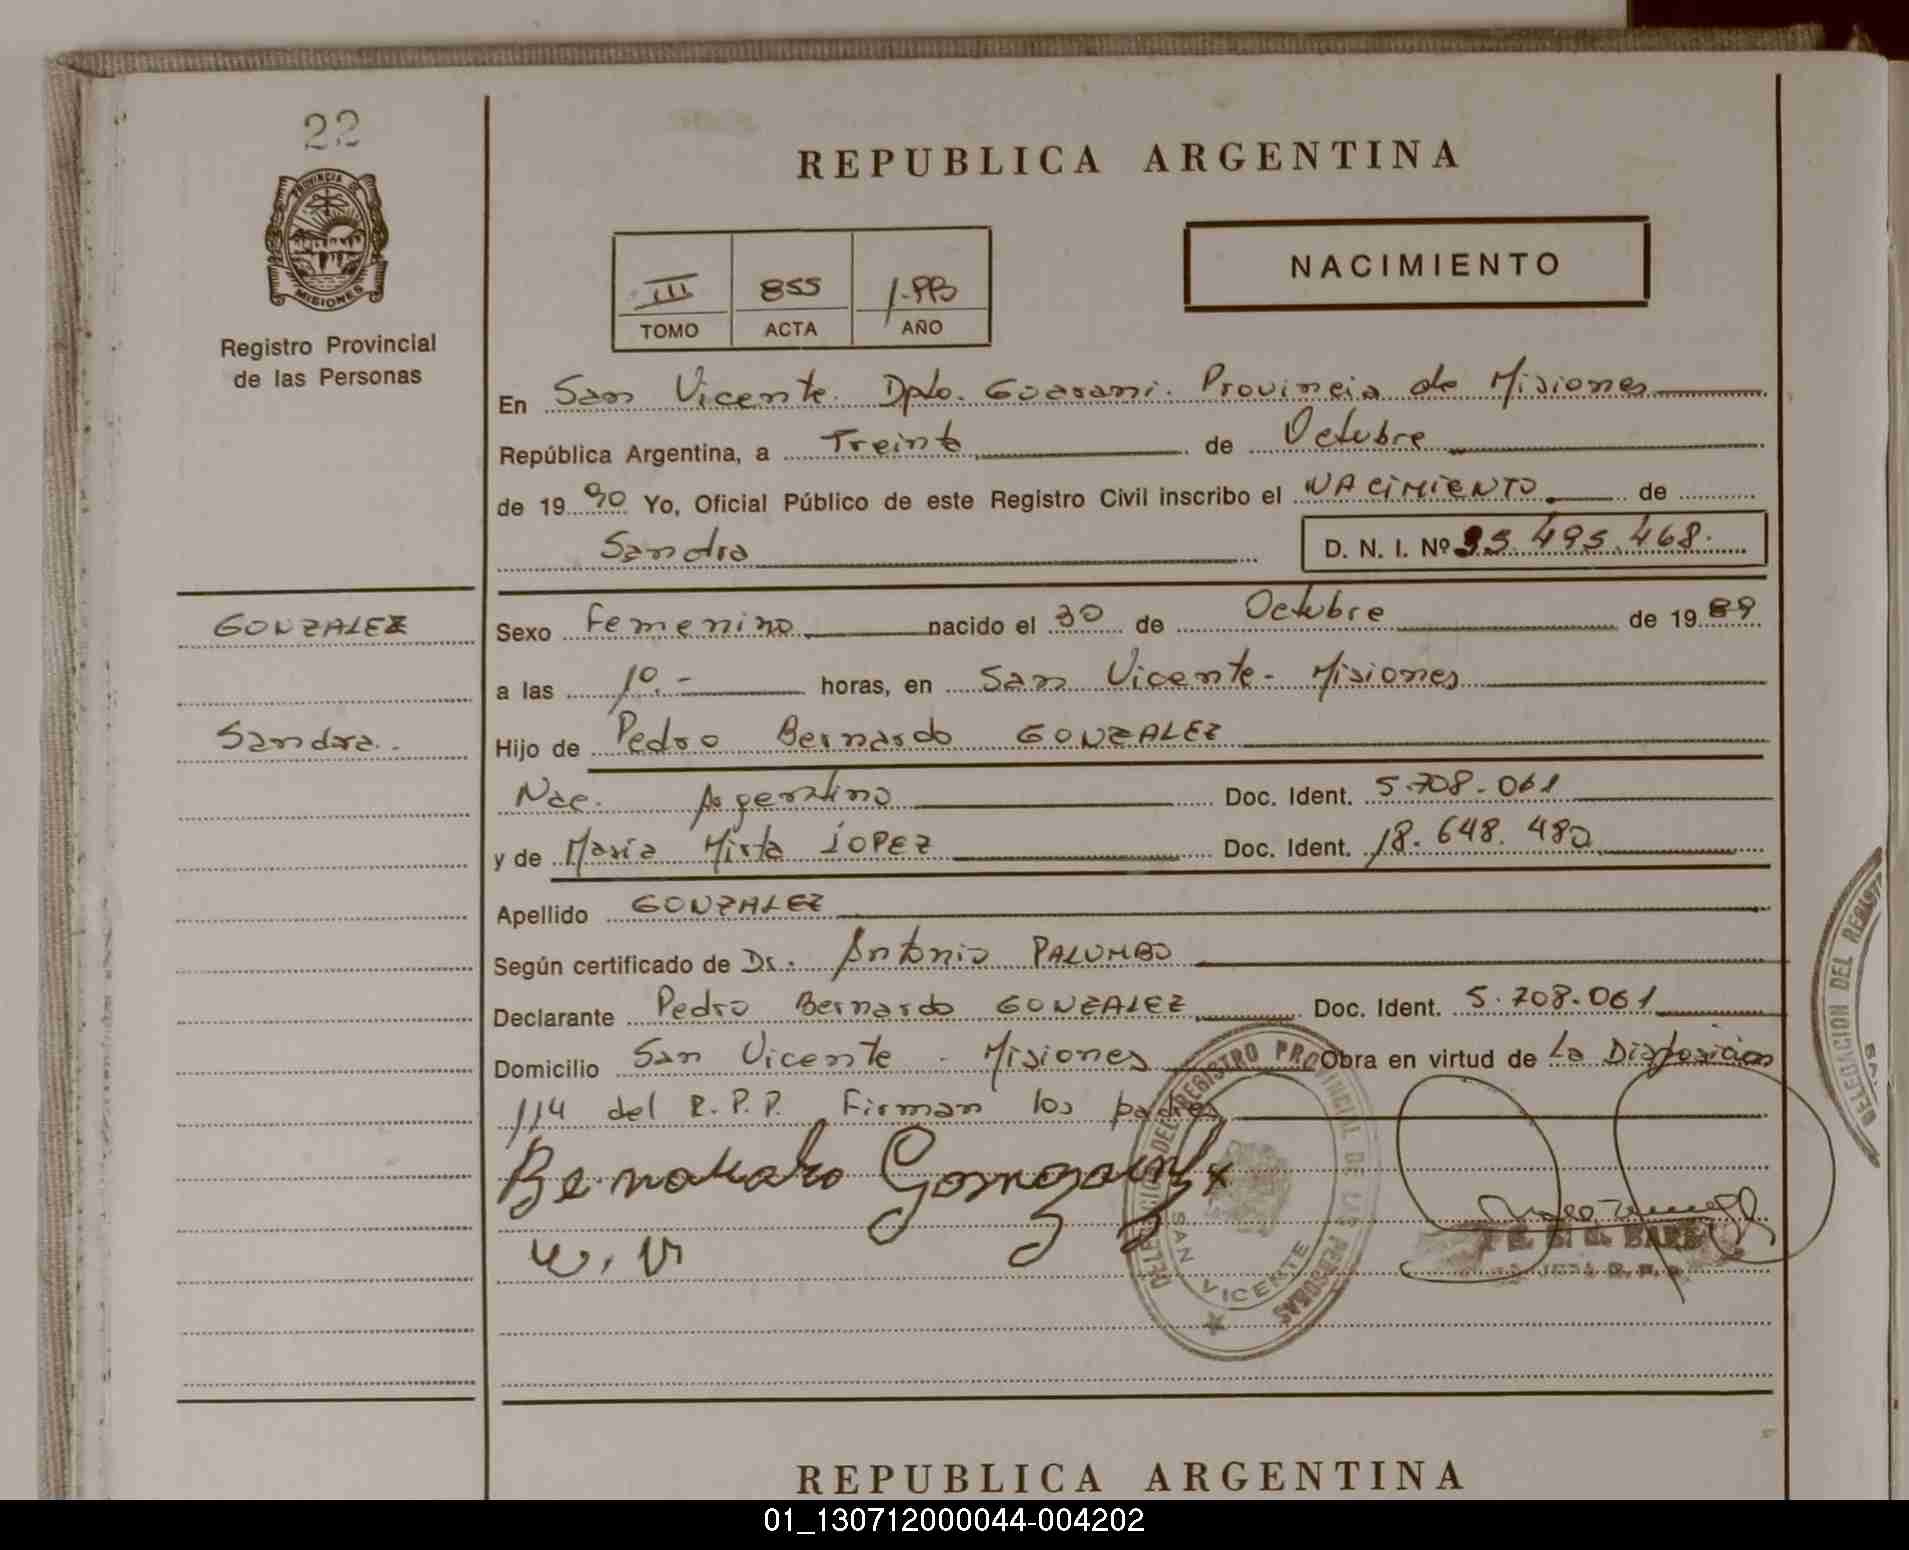 22
REPUBLICA ARGENTINA
PROVINCIA DE
MISIONES
Registro Provincial
de las Personas
III 855
TOMO ACTA AÑO
NACIMIENTO
En San Vicente. Dpto. Guarani. Provincia de Misiones
República Argentina, a Treinta de Octubre
de 1990 Yo, Oficial Público de este Registro Civil inscribo el NACIMIENTO de
Sandra D. N. I. Nº 35.495.468.
GONZALEZ
Sexo Femenino nacido el 30 de Octubre de 1989
a las horas, en San Vicente - Misiones
Sandra.
Hijo de Pedro Bernardo GONZALEZ
Nac. Argentino Doc. Ident. 5.708.061
y de Maria Mirta LOPEZ Doc. Ident. 18.648.480
Apellido GONZALEZ
Según certificado de Dr. Antonio PALUMBO
Declarante Pedro Bernardo GONZALEZ Doc. Ident. 5.708.061
Domicilio San Vicente - Misiones Obra en virtud de La Disposición
114 del R.P.P. Firman los padres
DELEGACION DEL REGISTRO PROVINCIAL DE LAS PERSONAS
SAN VICENTE
DELEGACION DEL REGISTR
REPUBLICA ARGENTINA
01_130712000044-004202